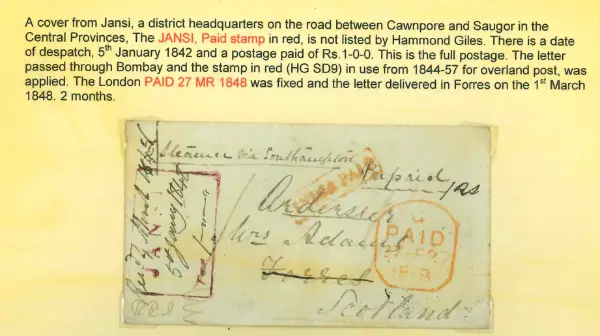 A cover from Jansi, a district headquarters on the road between Cawnpore and Saugor in the
Central Provinces, The JANSI, Paid stamp in red, is not listed by Hammond Giles. There is a date
of despatch, 5th January 1842 and a postage paid of Rs.1-0-0. This is the full postage. The letter
passed through Bombay and the stamp in red (HG SD9) in use from 1844-57 for overland post, was
applied. The London PAID 27 MR 1848 was fixed and the letter delivered in Forres on the 1st March
1848. 2 months.
Steamer via Southampton
Prepaid
Ardersier
Mrs Adams
Forres
Scotland
JAN
PAID